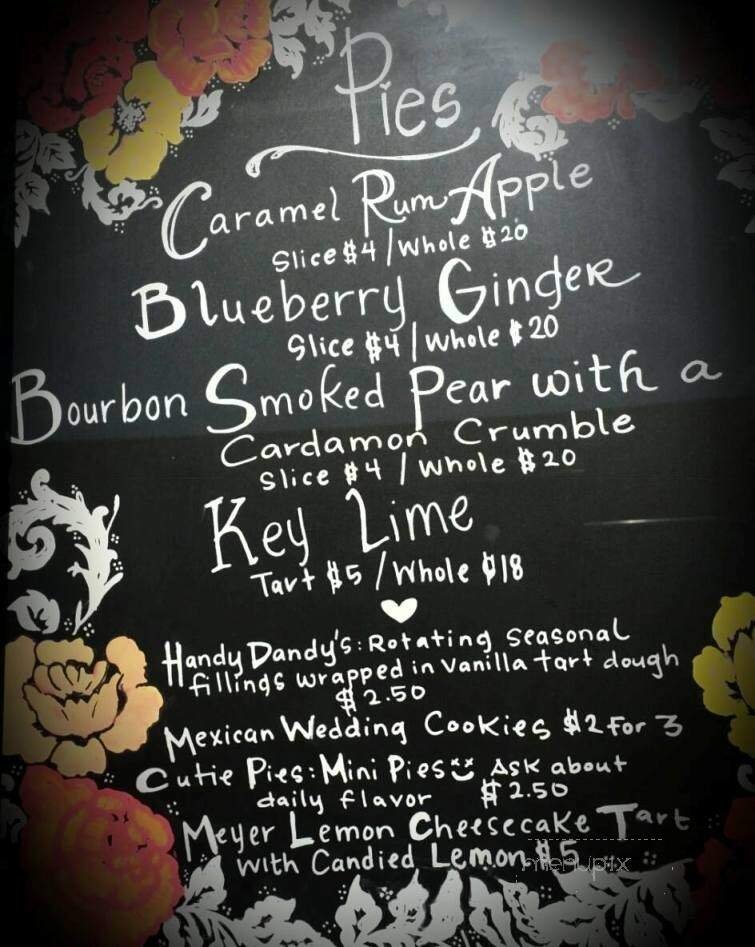 Pies
Caramel Rum Apple
Slice $4 / Whole $20
Blueberry Ginger
Slice $4 / Whole $20
Bourbon Smoked Pear with a
Cardamon Crumble
Slice $4 / Whole $20
Key Lime
Tart $5 / Whole $18
Handy Dandy's: Rotating Seasonal
fillings wrapped in Vanilla tart dough
$2.50
Mexican Wedding Cookies $2 for 3
Cutie Pies: Mini Pies Ask about
daily flavor $2.50
Meyer Lemon Cheesecake Tart
with Candied Lemon $5
menupix